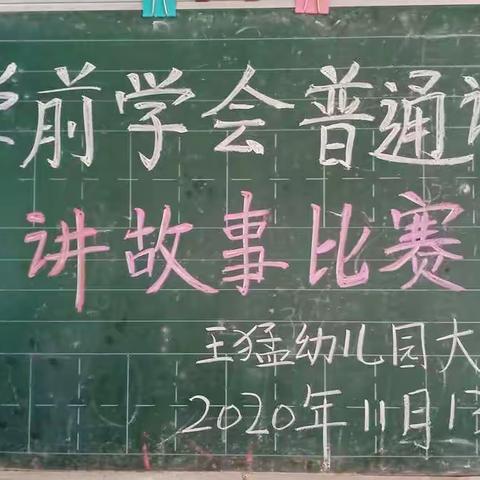 学前学会普通话
讲故事比赛
王猛幼儿园大
2020年11月1